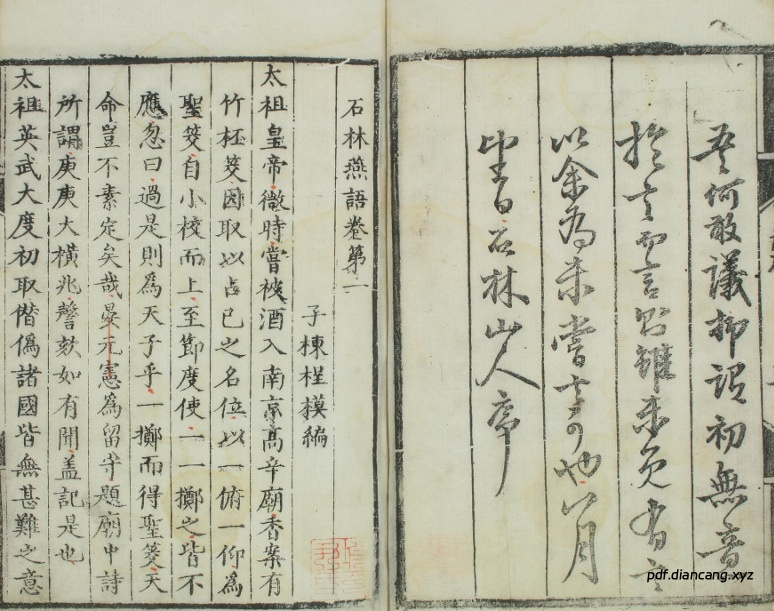 吾何敢議抑謂初無意
於言而言則雖未免有言
以余為未嘗言可也八月
望日石林山人序
石林燕語卷第一
子棟桯模編
太祖皇帝微時嘗被酒入南京高辛廟香案有
竹桮筊因取以占已之名位以一俯一仰為
聖筊自小校而上至節度使一一擲之皆不
應忽曰過是則為天子乎一擲而得聖筊天
命豈不素定矣哉晏元憲為留守題廟中詩
所謂庚庚大橫兆謦欬如有聞盖記是也
太祖英武大度初取僭偽諸國皆無甚難之意
pdf.diancang.xyz